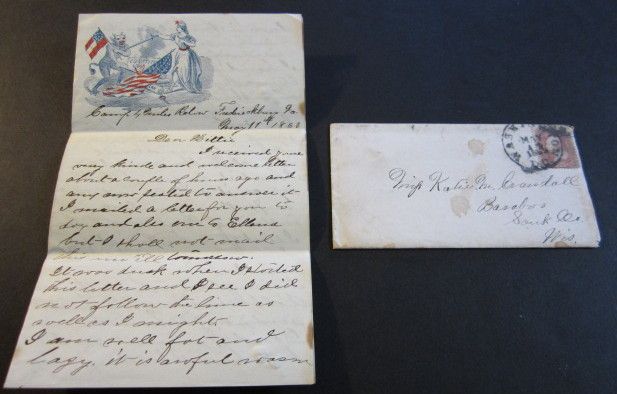 Camp 4 miles Below Fredricksburg Va
May 11th 186
Dear Kittie
I received your
very kind and welcome letter
about a couple of hours ago and
am seated to answer it
I mailed a letter for you to
day and also one to
but I shall not mail
It was dusk when I started
this letter and I see I did
not follow the lines as
well as I might.
I am well fat and
lazy. it is awful warm
WASH
Miss Katie M. Crandall
Baraboo
Sauk Co.
Wis.